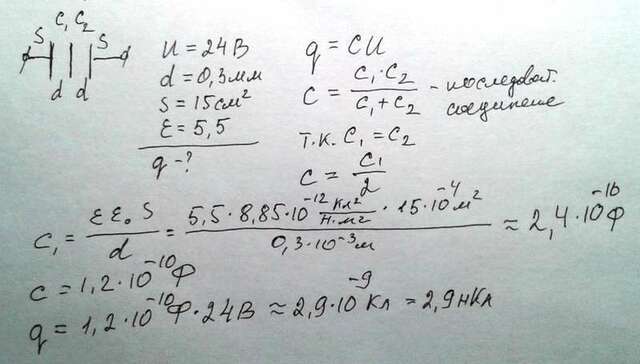 C₁ C₂
S S
d d
U = 24 В
d = 0,3 мм
S = 15 см²
ε = 5,5
q - ?
q = CU
C = C₁·C₂ / C₁+C₂ - последоват. соединение
т.к. C₁ = C₂
C = C₁ / 2
C₁ = εε₀S / d = 5,5 · 8,85 · 10⁻¹² Кл²/Н·м² · 15·10⁻⁴ м² / 0,3·10⁻³ м ≈ 2,4·10⁻¹⁰ Ф
C = 1,2·10⁻¹⁰ Ф
q = 1,2·10⁻¹⁰ Ф · 24 В ≈ 2,9·10⁻⁹ Кл = 2,9 нКл